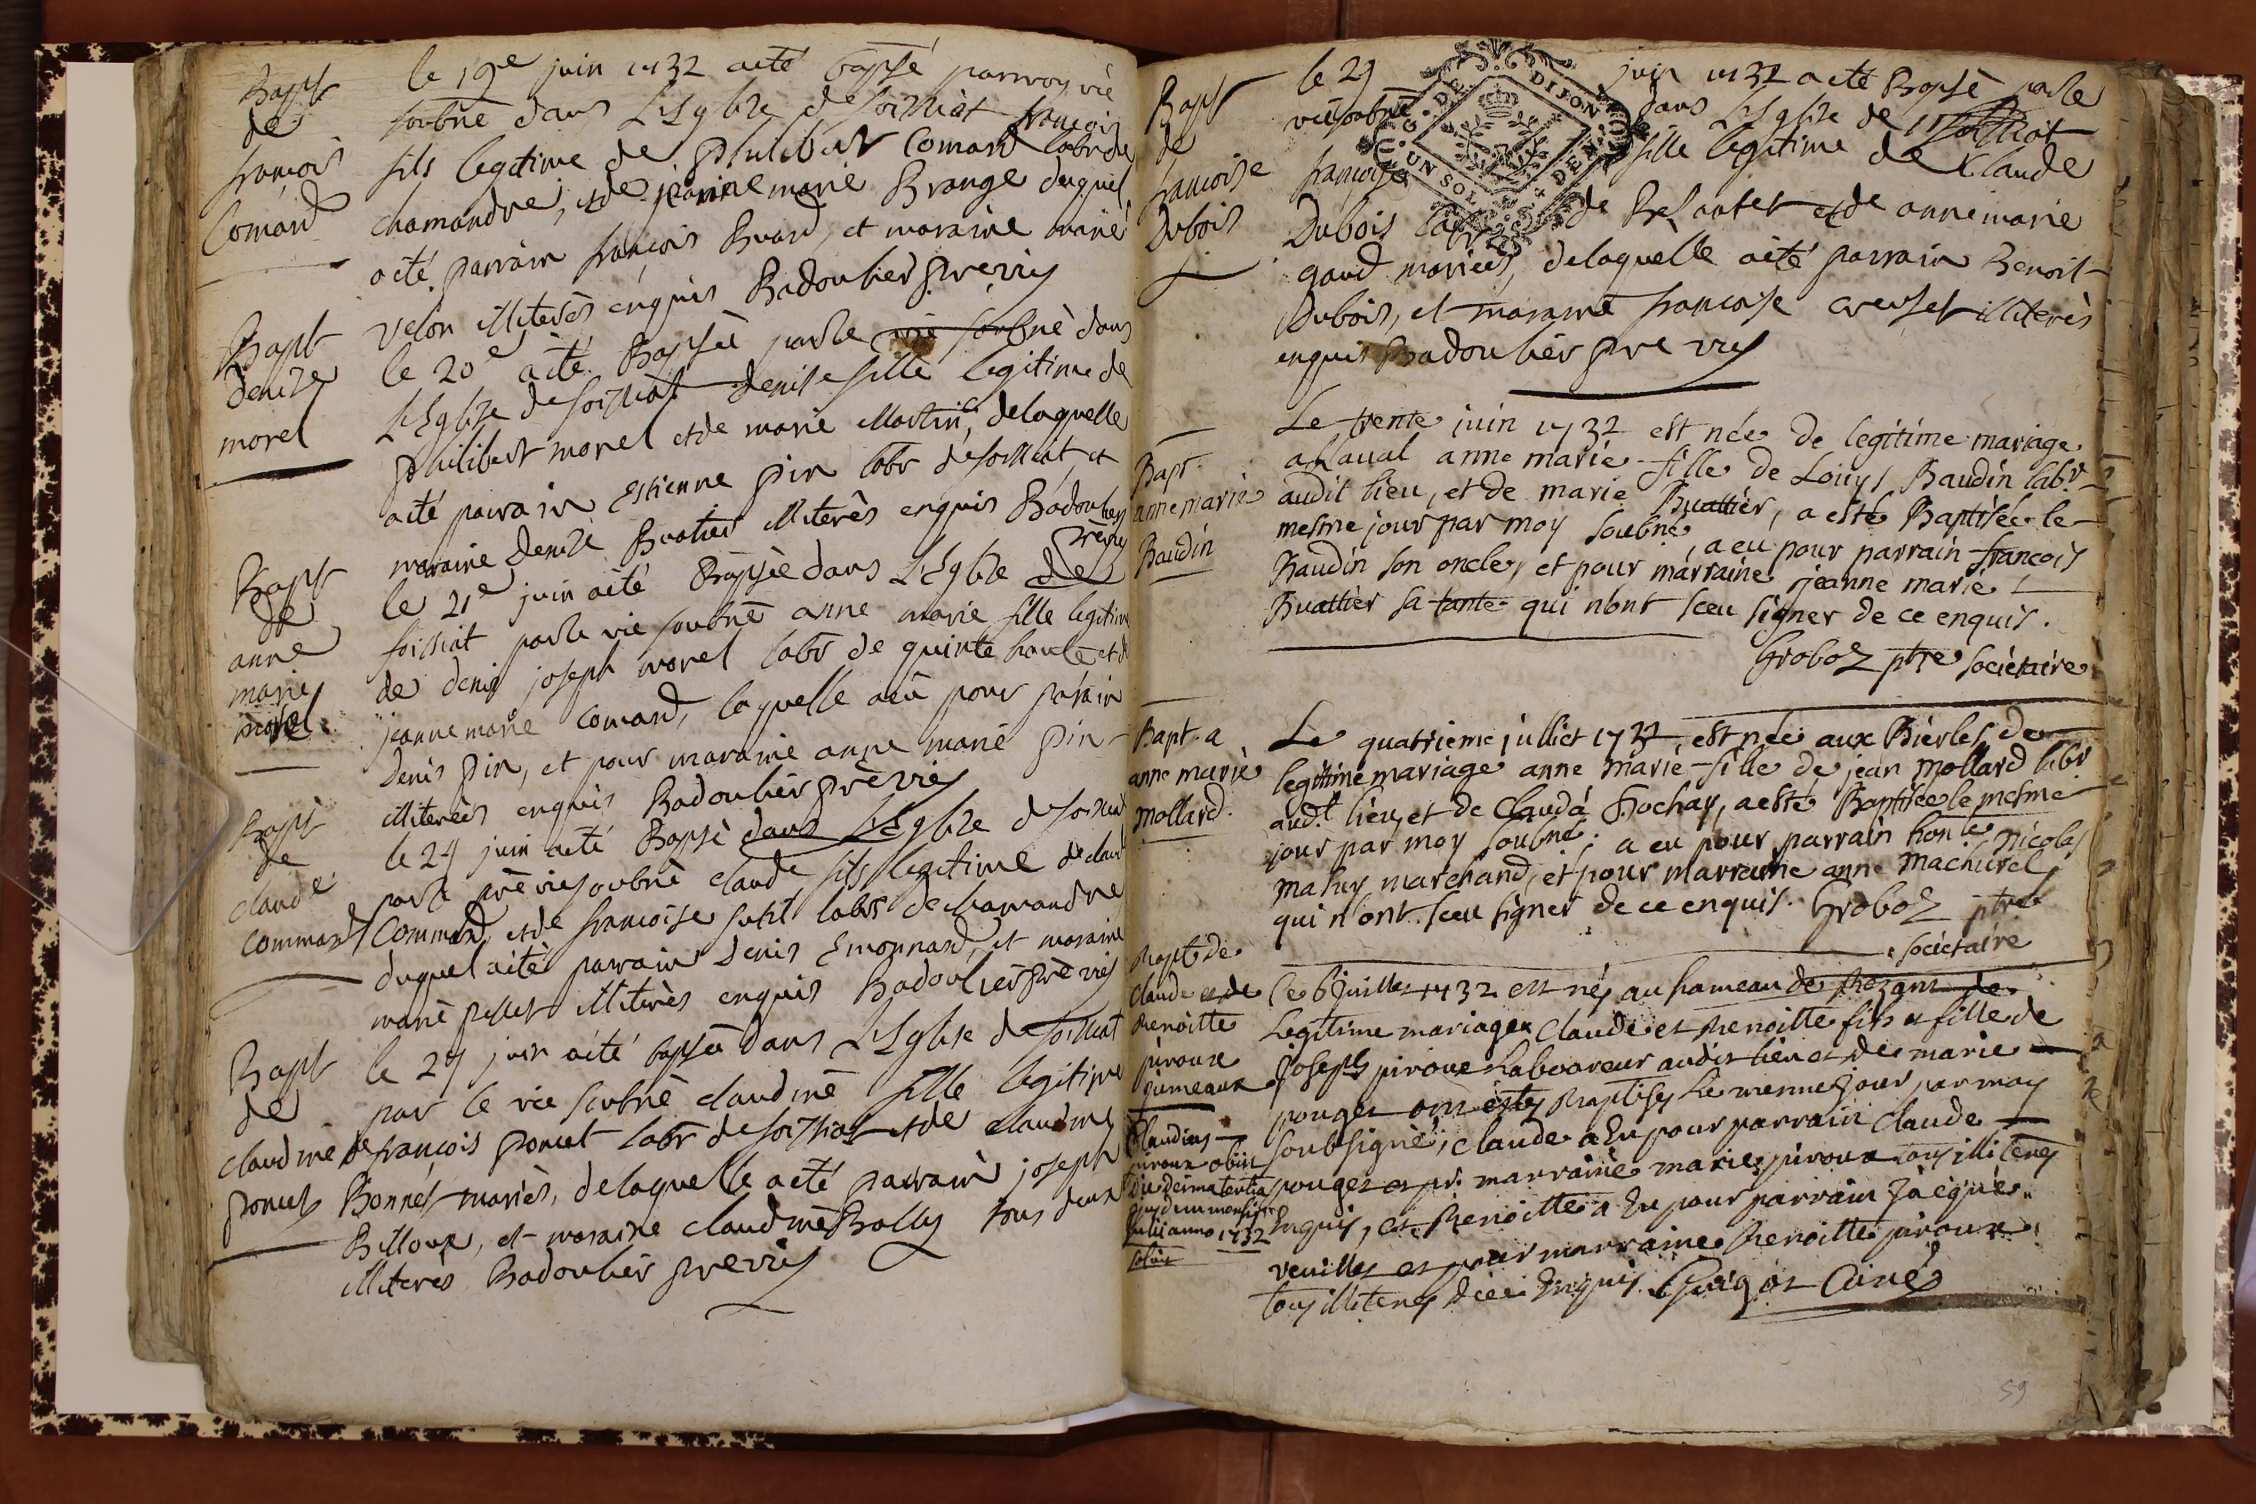 Bapt
de
francois
Comand
le 19e juin 1732 acté bapsé par moy vié
soubné dans L'Eglize de foissiat francois
fils legitime de philibert Comand labr de
chamandre, et de jeanne marie Brange duquel
acté parrain francois Buard, et maraine marie
velon illiterès enquis Badoulier pre vié
Bapt
denize
morel
le 20e acté Bapsée par le vié soubné dans
L'Eglize de foissiat denise fille legitime de
philibert morel et de marie Martin, delaquelle
acté parrain Estienne pin labr de foissiat, et
maraine denize Buatier illiterès enquis Badoulier
pre vié
Bapt
de
anne
marie
morel
le 21e juin acté Bapsée dans L'Eglize de
foissiat par le vié soubné anne marie fille legitime
de denis joseph morel labr de quinte haute et de
jeanne marie Comand, laquelle aeu pour parain
denis pin, et pour maraine anne marie pin
illiterès enquis Badoulier pre vié
Bapt
de
claude
command
le 24 juin acté Bapsé dans L'Eglize de foissiat
par le pre vié soubné claude fils legitime de claude
Command, et de francoise sutil labrs de chamandre
duquel acté parrain denis Emonnard, et maraine
marie pellet illiterès enquis Badoulier pre vié
Bapt
de
claudine
poncet
le 27 juin acté bapsée dans L'Eglise de foissiat
par le vié soubné claudine fille legitime
de francois poncet labr de foissiat et de claudine
Bonnet mariés, delaquelle acté parrain joseph
Billoux, et maraine claudine Bolly tous deux
illiterès Badoulier pre vié
Bapt
de
francoise
Dubois
le 29 juin 1732 acté Bapsé par le
vié soubné dans L'Eglize de foissiat
francoise fille legitime de Claude
Dubois labr de et de anne marie
gaud mariés, delaquelle acté parrain Benoit
Dubois, et maraine francoise creuset illiterès
enquis Badoulier pre vié
G. DE DIJON
UN SOL
DEN.
Bapt.
anne marie
Baudin
Le trente juin 1732 est née de legitime mariage
a Laual anne marie fille de Louys Baudin labr
audit lieu, et de marie Buattier, a esté Baptisée le
mesme jour par moy soubné, a eu pour parrain francois
Baudin son oncle, et pour marraine jeanne marie
Buattier sa tante qui nont sceu signer de ce enquis.
Groboz ptre societaire
Bapt. a
anne marie
mollard.
Le quatrieme juilliet 1732, est née aux Bierles de
legittime mariage anne marie fille de jean mollard labr
audt lieu, et de Clauda Hochay, a esté Baptisée le mesme
jour par moy soubné, a eu pour parrain honle nicolas
mahuy marchand, et pour marraine anne machurel
qui n'ont sceu signer de ce enquis. Groboz ptre
societaire
Bapt de
claude et de
Benoitte
piroux
gumeaux
Le 6 juillet 1732 est néz au hameau de Bezant de
Legitime mariage Claude et Benoitte fils et fille de
Joseph piroux Laboureur audit lieu et de marie
pouget ont estés Baptisés Le mesme jour par moy
soubsigné, claude a Eu pour parrain Claude
pouget et pr. marraine marie piroux tous illiterés
Enquis, et Benoitte a Eu pour parrain Jacques
veuillet et pour marraine Benoitte piroux
tous illiterés dece Enquis. Guigot Curé
Claudius
piroux obiit
die decima tertia
ejusdem mensis
Julii anno 1732
59